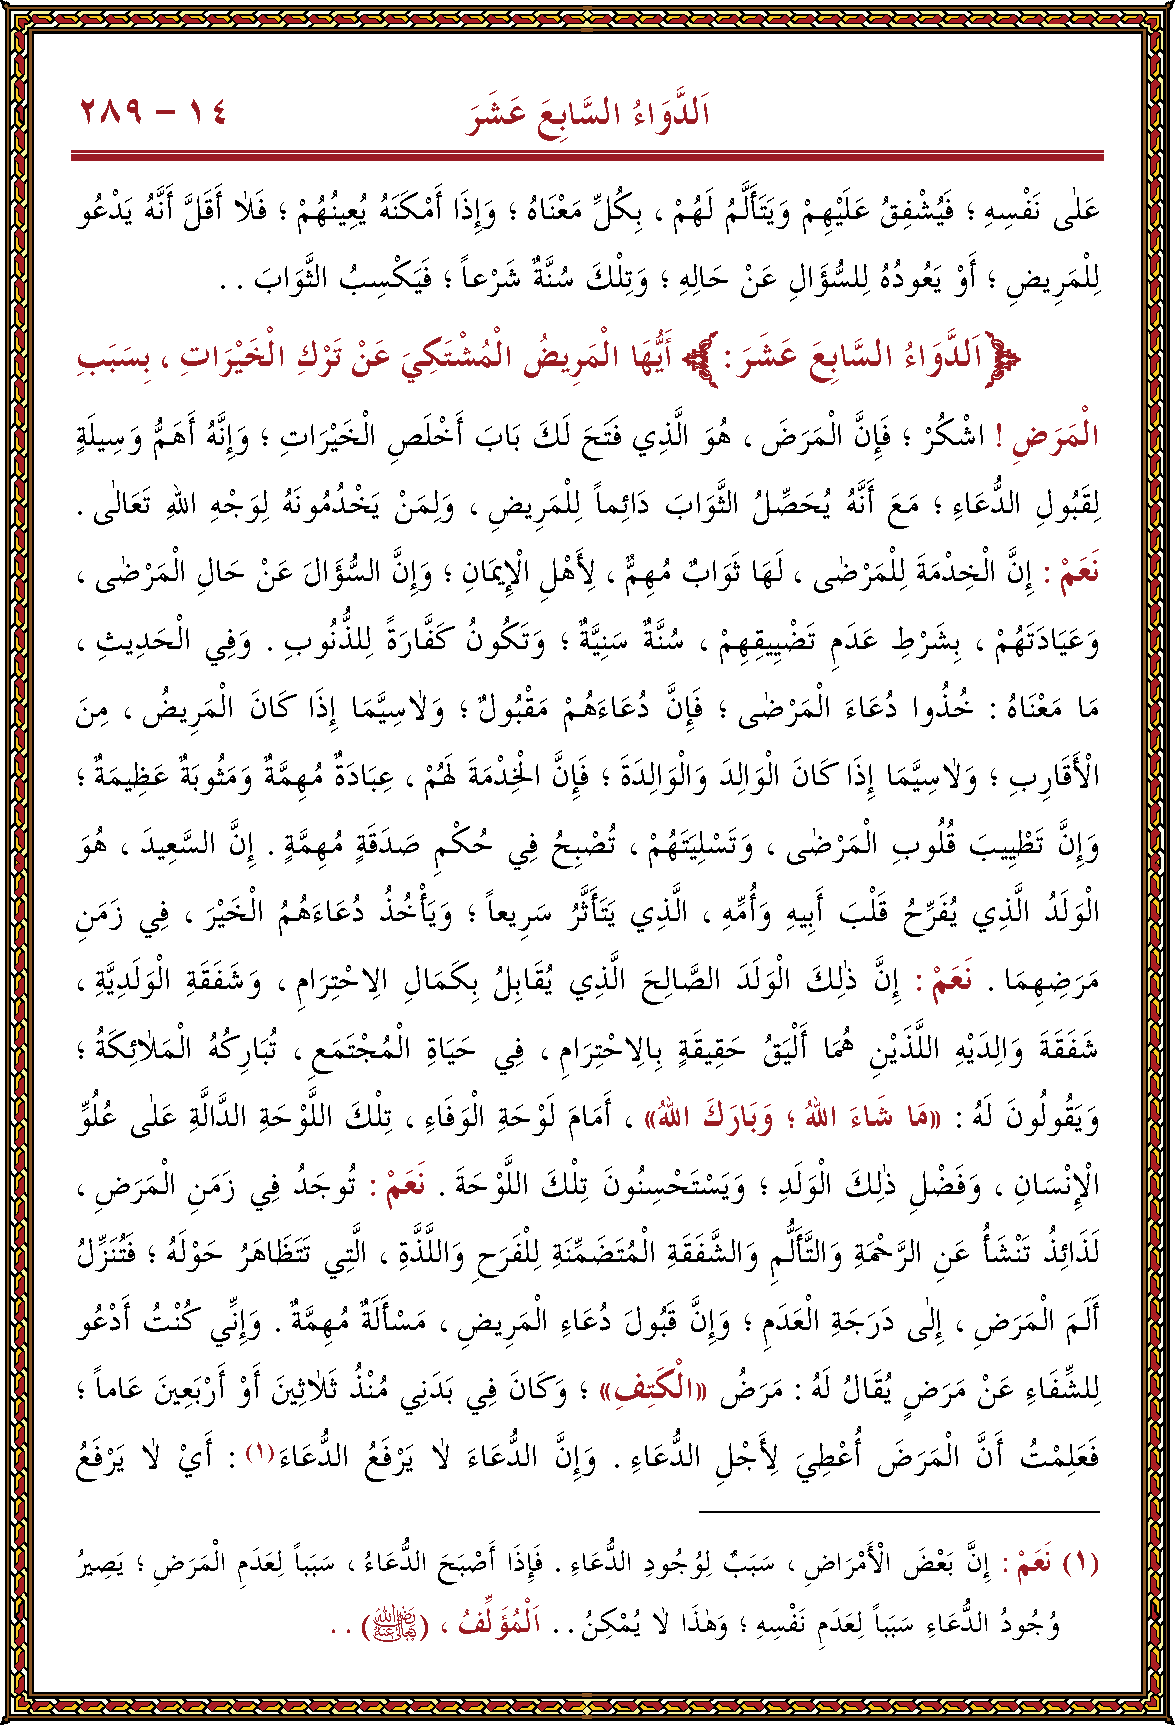 اَلدَّوَاءُ السَّابِعَ عَشَرَ ١٤ - ٢٨٩
عَلٰى نَفْسِهِ ؛ فَيُشْفِقُ عَلَيْهِمْ وَيَتَأَلَّمُ لَهُمْ ، بِكُلِّ مَعْنَاهُ ؛ وَإِذَا أَمْكَنَهُ يُعِينُهُمْ ؛ فَلاٰ أَقَلَّ أَنَّهُ يَدْعُو
لِلْمَرِيضِ ؛ أَوْ يَعُودُهُ لِلسُّؤَالِ عَنْ حَالِهِ ؛ وَتِلْكَ سُنَّةٌ شَرْعاً ؛ فَيَكْسِبُ الثَّوَابَ . .
﴿اَلدَّوَاءُ السَّابِعَ عَشَرَ :﴾ أَيُّهَا الْمَرِيضُ الْمُشْتَكِيَ عَنْ تَرْكِ الْخَيْرَاتِ ، بِسَبَبِ
الْمَرَضِ ! اشْكُرْ ؛ فَإِنَّ الْمَرَضَ ، هُوَ الَّذِي فَتَحَ لَكَ بَابَ أَخْلَصِ الْخَيْرَاتِ ؛ وَإِنَّهُ أَهَمُّ وَسِيلَةٍ
لِقَبُولِ الدُّعَاءِ ؛ مَعَ أَنَّهُ يُحَصِّلُ الثَّوَابَ دَائِماً لِلْمَرِيضِ ، وَلِمَنْ يَخْدُمُونَهُ لِوَجْهِ اللهِ تَعَالٰى .
نَعَمْ : إِنَّ الْخِدْمَةَ لِلْمَرْضٰى ، لَهَا ثَوَابٌ مُهِمٌّ ، لِأَهْلِ الْإِيمَانِ ؛ وَإِنَّ السُّؤَالَ عَنْ حَالِ الْمَرْضٰى ،
وَعِيَادَتَهُمْ ، بِشَرْطِ عَدَمِ تَضْيِيقِهِمْ ، سُنَّةٌ سَنِيَّةٌ ؛ وَتَكُونُ كَفَّارَةً لِلذُّنُوبِ . وَفِي الْحَدِيثِ ،
مَا مَعْنَاهُ : خُذُوا دُعَاءَ الْمَرْضٰى ؛ فَإِنَّ دُعَاءَهُمْ مَقْبُولٌ ؛ وَلاٰسِيَّمَا إِذَا كَانَ الْمَرِيضُ ، مِنَ
الْأَقَارِبِ ؛ وَلاٰسِيَّمَا إِذَا كَانَ الْوَالِدَ وَالْوَالِدَةَ ؛ فَإِنَّ الْخِدْمَةَ لَهُمْ ، عِبَادَةٌ مُهِمَّةٌ وَمَثُوبَةٌ عَظِيمَةٌ ؛
وَإِنَّ تَطْيِيبَ قُلُوبِ الْمَرْضٰى ، وَتَسْلِيَتَهُمْ ، تُصْبِحُ فِي حُكْمِ صَدَقَةٍ مُهِمَّةٍ . إِنَّ السَّعِيدَ ، هُوَ
الْوَلَدُ الَّذِي يُفَرِّحُ قَلْبَ أَبِيهِ وَأُمِّهِ ، الَّذِي يَتَأَثَّرُ سَرِيعاً ؛ وَيَأْخُذُ دُعَاءَهُمُ الْخَيْرَ ، فِي زَمَنِ
مَرَضِهِمَا . نَعَمْ : إِنَّ ذٰلِكَ الْوَلَدَ الصَّالِحَ الَّذِي يُقَابِلُ بِكَمَالِ الِاحْتِرَامِ ، وَشَفَقَةِ الْوَلَدِيَّةِ ،
شَفَقَةَ وَالِدَيْهِ اللَّذَيْنِ هُمَا أَلْيَقُ حَقِيقَةٍ بِالِاحْتِرَامِ ، فِي حَيَاةِ الْمُجْتَمَعِ ، تُبَارِكُهُ الْمَلاٰئِكَةُ ؛
وَيَقُولُونَ لَهُ : «مَا شَاءَ اللهُ ؛ وَبَارَكَ اللهُ» ، أَمَامَ لَوْحَةِ الْوَفَاءِ ، تِلْكَ اللَّوْحَةِ الدَّالَّةِ عَلٰى عُلُوِّ
الْإِنْسَانِ ، وَفَضْلِ ذٰلِكَ الْوَلَدِ ؛ وَيَسْتَحْسِنُونَ تِلْكَ اللَّوْحَةَ . نَعَمْ : تُوجَدُ فِي زَمَنِ الْمَرَضِ ،
لَذَائِذُ تَنْشَأُ عَنِ الرَّحْمَةِ وَالتَّأَلُّمِ وَالشَّفَقَةِ الْمُتَضَمِّنَةِ لِلْفَرَحِ وَاللَّذَّةِ ، الَّتِي تَتَظَاهَرُ حَوْلَهُ ؛ فَتُنَزِّلُ
أَلَمَ الْمَرَضِ ، إِلٰى دَرَجَةِ الْعَدَمِ ؛ وَإِنَّ قَبُولَ دُعَاءِ الْمَرِيضِ ، مَسْأَلَةٌ مُهِمَّةٌ . وَإِنِّي كُنْتُ أَدْعُو
لِلشِّفَاءِ عَنْ مَرَضٍ يُقَالُ لَهُ : مَرَضُ «الْكَتِفِ» ؛ وَكَانَ فِي بَدَنِي مُنْذُ ثَلاٰثِينَ أَوْ أَرْبَعِينَ عَاماً ؛
فَعَلِمْتُ أَنَّ الْمَرَضَ أُعْطِيَ لِأَجْلِ الدُّعَاءِ . وَإِنَّ الدُّعَاءَ لاٰ يَرْفَعُ الدُّعَاءَ(١) : أَيْ لاٰ يَرْفَعُ
(١) نَعَمْ : إِنَّ بَعْضَ الْأَمْرَاضِ ، سَبَبٌ لِوُجُودِ الدُّعَاءِ . فَإِذَا أَصْبَحَ الدُّعَاءُ ، سَبَباً لِعَدَمِ الْمَرَضِ ؛ يَصِيرُ
وُجُودُ الدُّعَاءِ سَبَباً لِعَدَمِ نَفْسِهِ ؛ وَهٰذَا لاٰ يُمْكِنُ . . اَلْمُؤَلِّفُ ، (رضي الله تعالى عنه) . .